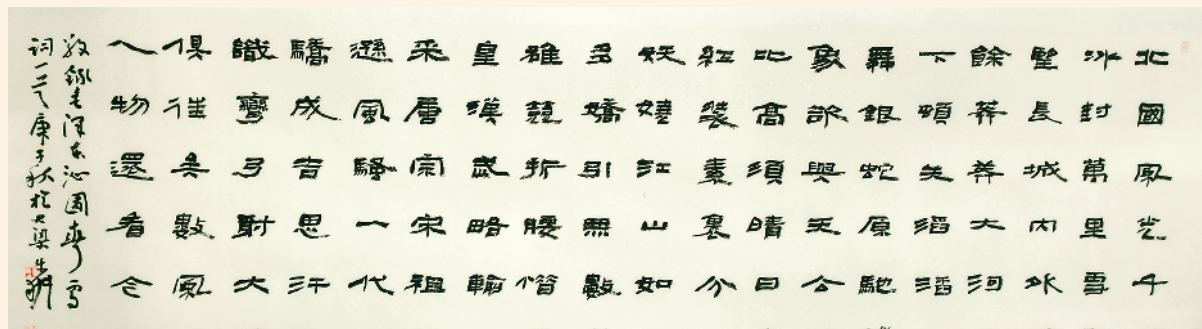 北國風光千
冰封萬里雪
望長城內外
餘莽莽大河
下頓失滔滔
舞銀蛇原馳
象欲與天公
比高須晴日
紅裝素裹分
妖嬈江山如
多嬌引無數
雄競折腰惜
皇漢武略輸
采唐宗宋祖
遜風騷一代
驕成吉思汗
識彎弓射大
俱往矣數風
人物還看今
敬錄毛澤東沁園春雪
詞一庚子秋於大梁